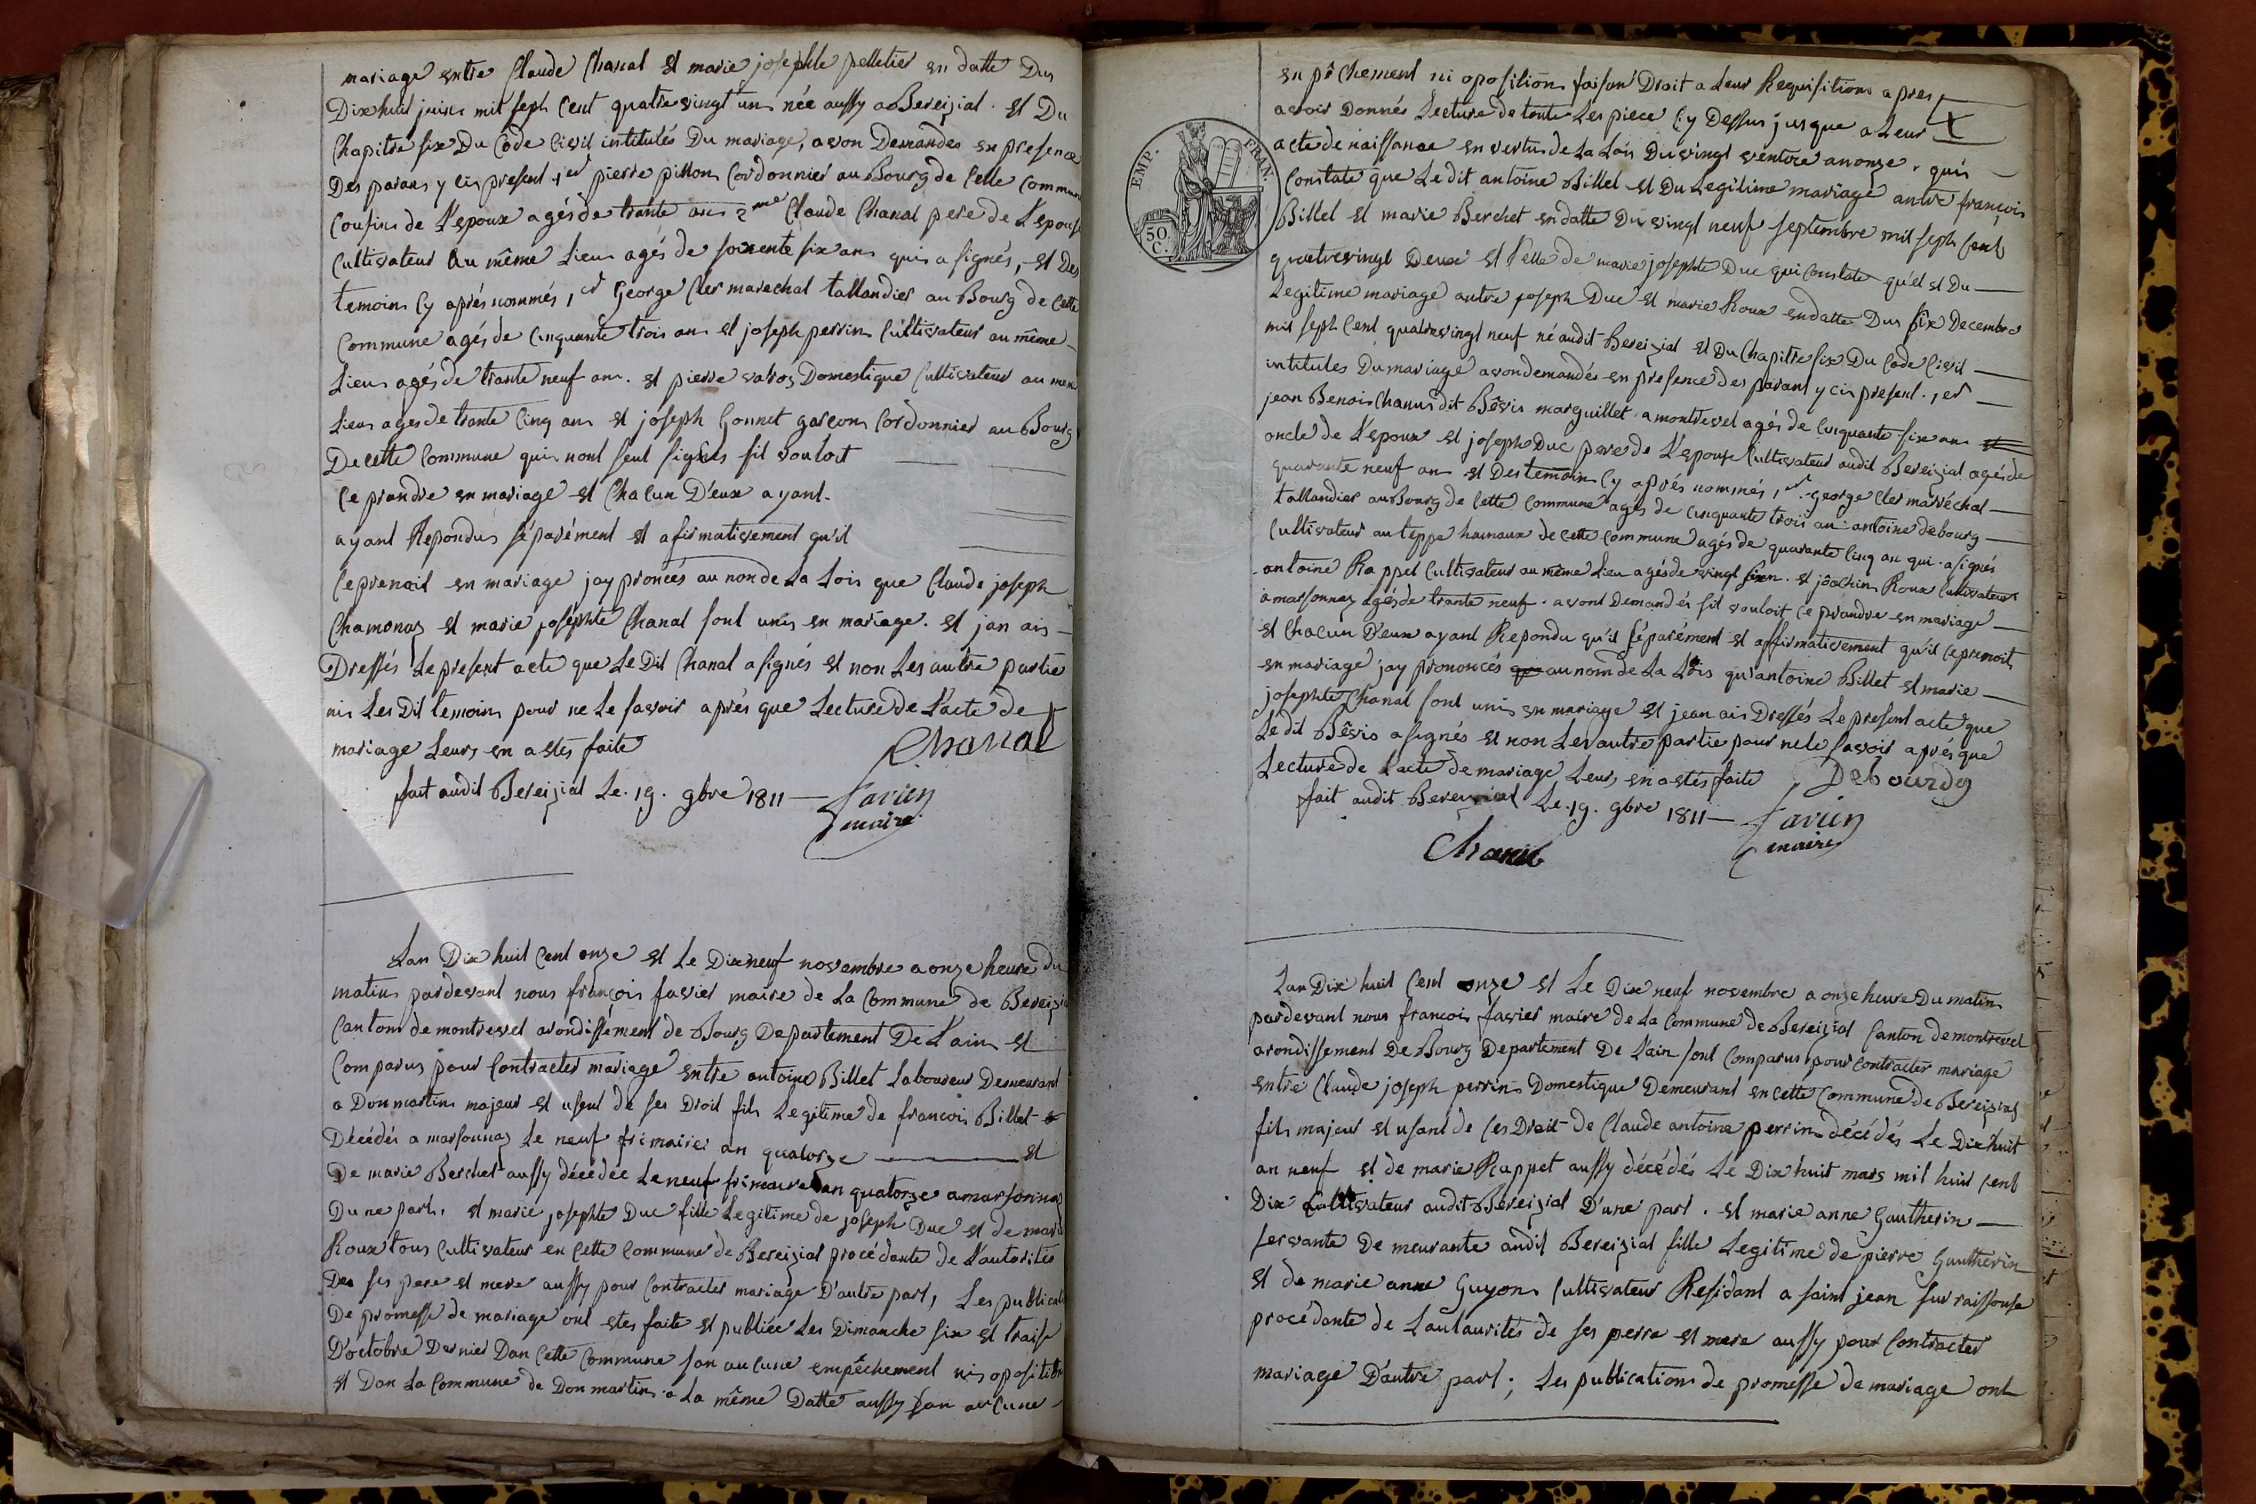 mariage entre Claude Chanal et marie josephte pelletier en datte Du
Dixhuit juin mil sept Cent quatrevingt un née aussy a Bereizial. et Du
Chapitre six Du Code Civil intitulés Du mariage, avon Demandes en presence
Des parans y cis present, 1er pierre pillon Cordonnier au Bourg de Cette Commune
Cousins de L'epoux agés de trante ans 2me Claude Chanal pere de L'epouse
Cultivateur au même Lieu agés de soixente six ans qui a signés, et Des
temoins Cy aprés nommés, 1er George Cler marechal tallandier au Bourg de Cette
Commune agés de Cinquante trois ans et joseph perrin Cultivateur au même
Lieu agés de trante neuf ans. et pierre Domestique Cultivateur au mem
Lieu ages de trante Cinq ans et joseph Gonnet garcon Cordonnier au Bourg
De cette Commune quis nont seul signés sil vouloit
Ce prandre en mariage et Chacun D'eux ayant
ayant Repondus séparément et afirmativement qu'il
Ceprenoit en mariage jay pronces au nonde La Lois que Claude joseph
Chamonaz et marie josephte Chanal sont unis en mariage. et jan ais
Dressés Le present acte que Le Dit Chanal a signés et non Les autre partie
nis Les Dit temoins pour ne Le savoir aprés que Lecture de L'acte de
mariage Leurs en a etés faite
Chanal
fait audit Bereizial Le. 19. 9bre 1811
favier
maire
Lan Dix huit Cent onze et Le Dixneuf novembre a onze heure du
matin pardevant nous françois favier maire de La Commune de Bereizi
Canton de montrevel arondissément de Bourg Departement De L'ain et
Comparus pour Contracter mariage entre antoine Billet Laboureur Demeurant
a Donmartin majeur et usent de ses Droit fils Legitime de francois Billet
Décédés a marsonnaz Le neuf frimaire an quatorze et
De marie Berchet aussy décédée Le neuf frimaire an quatorze a marsonnaz
Du ne part. et marie josephte Duc fille Legitime de joseph Duc et de marie
Roux tous Cultivateur en Cette Commune de Bereizial procédante de L'autorités
De ses pere et mere aussy pour Contracter mariage D'autre part, Les publicati
De promesse de mariage ont etes faite et publiée Les Dimanche six et traise
D'octobre Dernier Dan Cette Commune san aucune empêchement nis oposition
et Dan La Commune de Donmartin a La même Datte aussy san aucune
EMP. FRAN.
50
C.
en pêchement ni oposition faison Droit a Leur Requisition apres
avoir Donnés Lecture de toute Les piece Cy Dessus jusque a Leur
acte de naissanae en vertus de La Lois Du vingt ventoze an onze. quis
Constate que Le dit antoine Billet et Du Legitime mariage antre françois
Billet et marie Berchet en datte Du vingt neuf septembre mil sept Cent
quatrevingt Deux et Celle de marie josephte Duc qui Constate qu'el et Du
Legitime mariage autre joseph Duc et marie Roux en datte Du six Decembre
mil sept Cent quatrevingt neuf né audit Bereizial et Du Chapitre six Du Code Civil
intitules Du mariage avondemandés en presence des parans y cis present. 1er
jean Benois Chanus dit Bêvis marguillet a montrevel agés de Cinquante six ans
oncle de L'epoux et joseph Duc pere de L'epouse Cultivateur audit Bereizial agés de
quarante neuf ans et Des temoins Cy aprés nommés, 1er George Cler maréchal
tallandier au Bourg de Cette Commune agés de Cinquante trois an antoine debourg
Cultivateur au teppe hamaux de Cette Commune agés de quarante Cinq an qui a signés
antoine Rappet Cultivateur au même Lieu agés de vingt six an. et joachin Roux Cultivateur
a marsonnaz agés de trante neuf. avont Demandés sil vouloit Ce prandre en mariage
et Chacun D'eux ayant Repondu qu'il séparément et affirmativement qu'il Ceprenoit
en mariage jay prononcés que au nom de La Lois qu'antoine Billet et marie
josephte Chanal sont unis en mariage et jean ais Dressés Le present acte que
Le dit Bêvis a signés et non Les autre partie pour ne le savoir aprés que
Lecture de L'acte de mariage Leurs en a etés faite Debourdg
fait audit Bereizial Le. 19. 9bre 1811
favier
maire
Lan Dix huit Cent onze et Le Dix neuf novembre a onze heure Du matin
pardevant nous francois favier maire de La Commune de Bereizial Canton de montrevel
arondissement De Bourg Departement De L'ain sont Comparus pour Contracter mariage
entre Claude joseph perrin Domestique Demeurant en Cette Commune de Bereizial
fils majeur et usant de Ces Droit de Claude antoine perrin décédés Le Dixhuit
an neuf et de marie Rappet aussy décédés Le Dix huit mars mil huit Cent
Dix Cultivateur audit Bereizial D'une part. et marie anne Gautherin
servante De meurante audit Bereizial fille Legitime de pierre Gautherin
et de marie anne Guyon Cultivateur Residant a saint jean sur raissouse
procédante de Lautaurités de ses perre et mere aussy pour Contracter
mariage D'autre part; Les publication de promesse de mariage ont